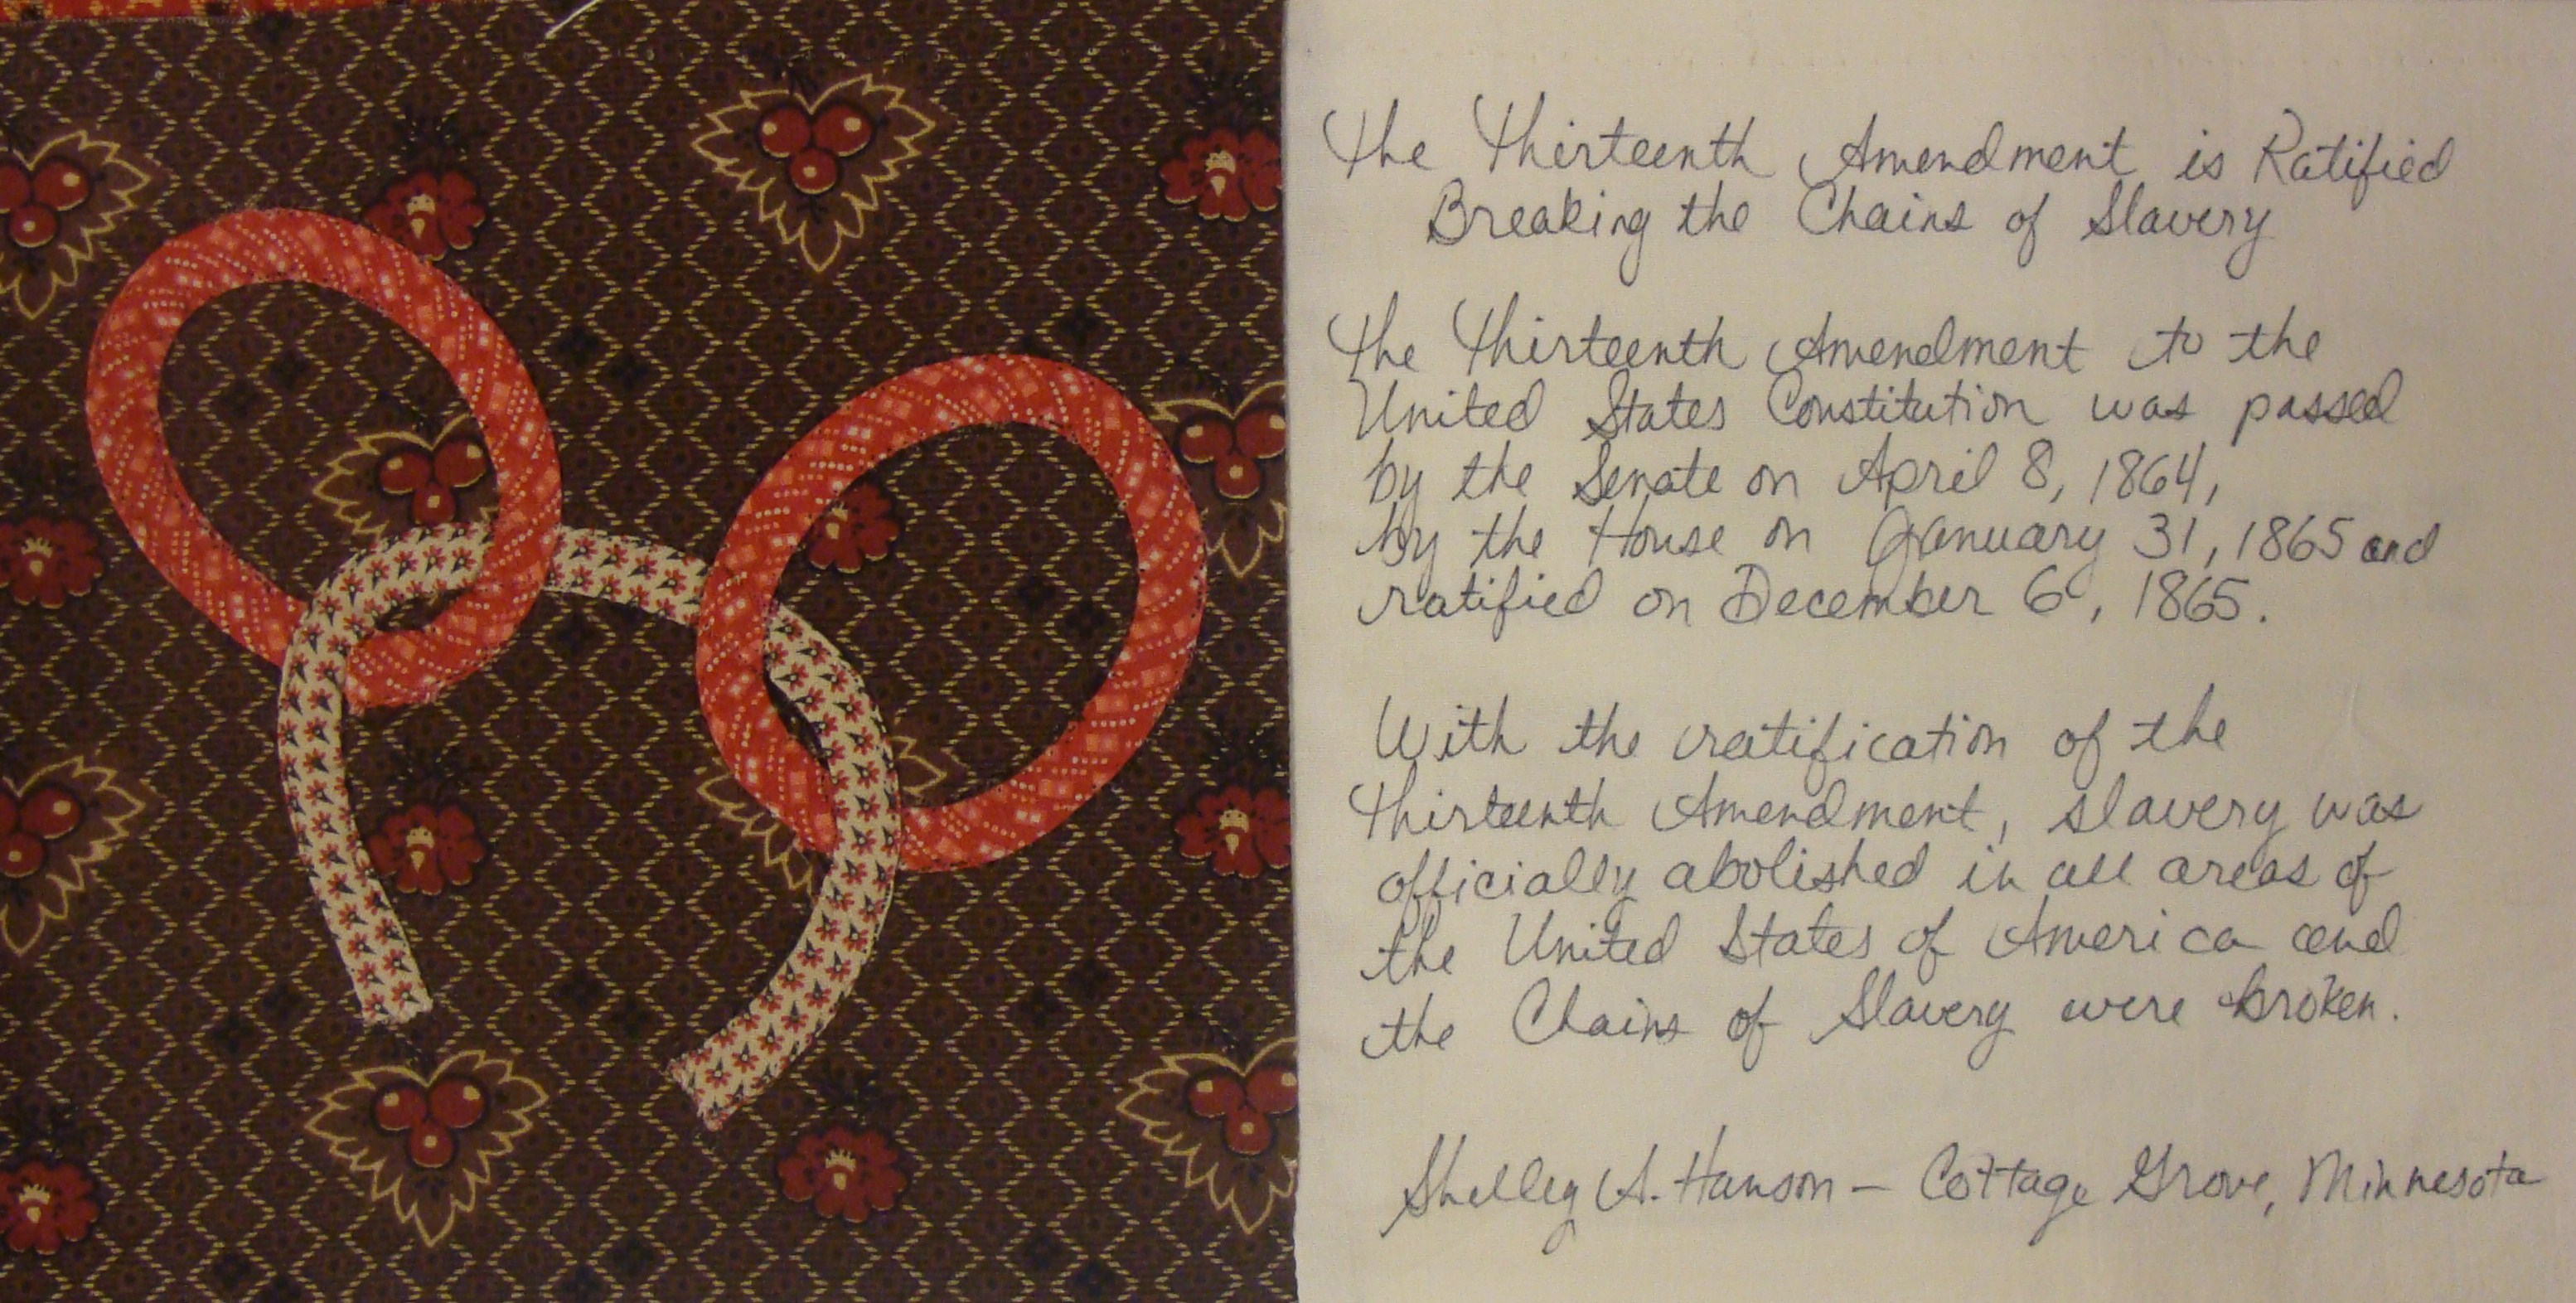 The Thirteenth Amendment is Ratified
Breaking the Chains of Slavery
The Thirteenth Amendment to the
United States Constitution was passed
by the Senate on April 8, 1864,
by the House on January 31, 1865 and
ratified on December 6, 1865.
With the ratification of the
Thirteenth Amendment, slavery was
officially abolished in all areas of
the United States of America and
the Chains of Slavery were broken.
Shelley A. Hanson – Cottage Grove, Minnesota